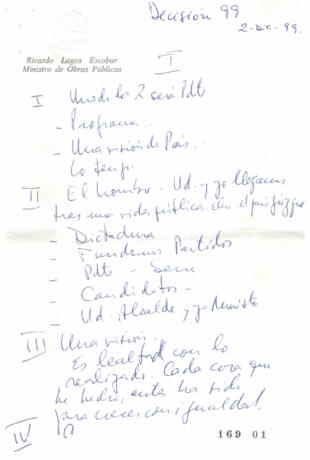 Decisión 99
2-Dic. 99.
Ricardo Lagos Escobar
Ministro de Obras Públicas
I
I Uno de los 2 será Pdte.
- Programa..
- Una visión de País..
Lo tengo.
II El hombre.. Ud. y yo llegamos
tras una vida pública
- Dictadura
- Fundamos Partidos
- Pdte -
- Candidatos -
- Ud. Alcalde y yo Ministro
III Una visión.
Es lealtad con lo
realizado. Cada cosa que
he hecho, antes ha sido
para crecer con igualdad.
IV
169 01